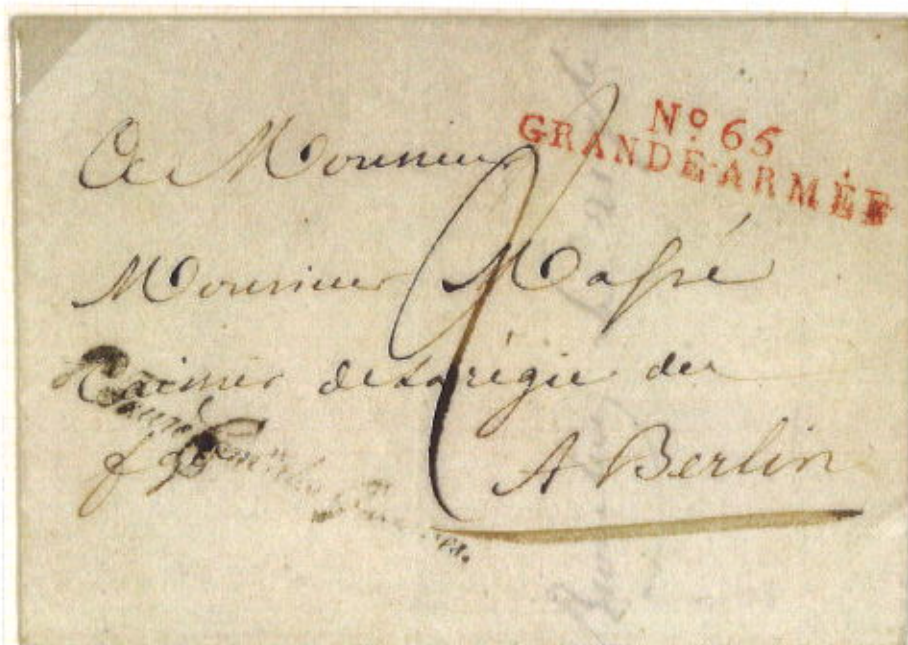 No 65
GRANDE-ARMÉE
A Monsieur
Monsieur Maßé
Caissier de la régie des
A Berlin